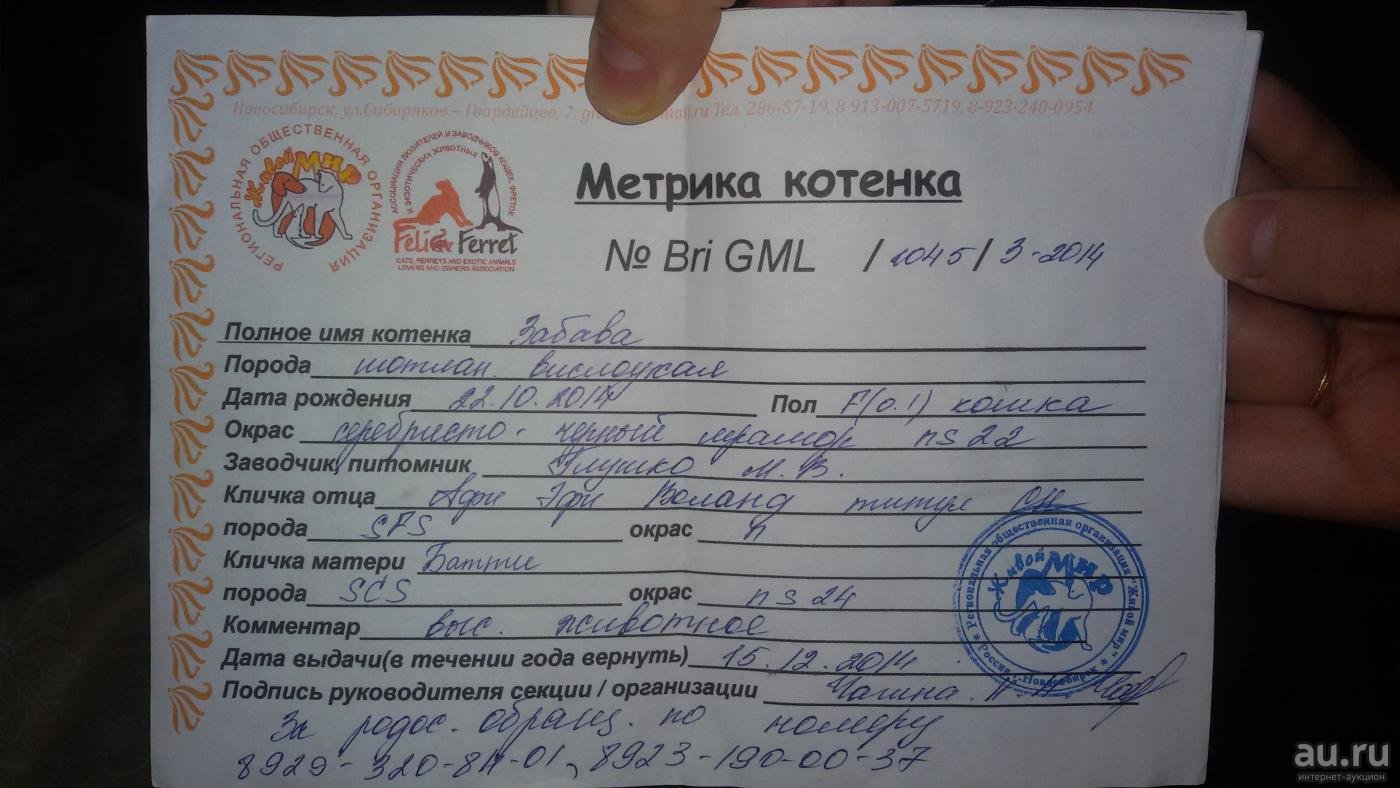 Новосибирск, ул.Сибиряков – Гвардейцев, 7. mail.ru Тел. 286-57-19, 8 913-007-5719, 8-923-240-0954.
РЕГИОНАЛЬНАЯ ОБЩЕСТВЕННАЯ ОРГАНИЗАЦИЯ
Живой Мир
АССОЦИАЦИЯ ЛЮБИТЕЛЕЙ И ЗАВОДЧИКОВ КОШЕК, ФРЕТОК
И ЭКЗОТИЧЕСКИХ ЖИВОТНЫХ
Ferret
CATS, FERRETS AND EXOTIC ANIMALS
LOVERS AND OWNERS ASSOCIATION
Метрика котенка
№ Bri GML / 1045 / 3-2014
Полное имя котенка Забава
Порода шотлан. вислоухая
Дата рождения 22.10.2014 Пол F(0.1) кошка
Окрас серебристо-черный мрамор ns 22
Заводчик, питомник Глушко М. В.
Кличка отца Воланд титул CH
порода SFS окрас n
Кличка матери Батти
порода SCS окрас ns 24
Комментар выс. животное
Дата выдачи(в течении года вернуть) 15.12.2014
Подпись руководителя секции / организации
За родос. обращ. по номеру
8929-320-84-01, 8923-190-00-37
Региональная общественная организация "Живой мир"
Россия г. Новосибирск
Живой Мир
au.ru
интернет-аукцион